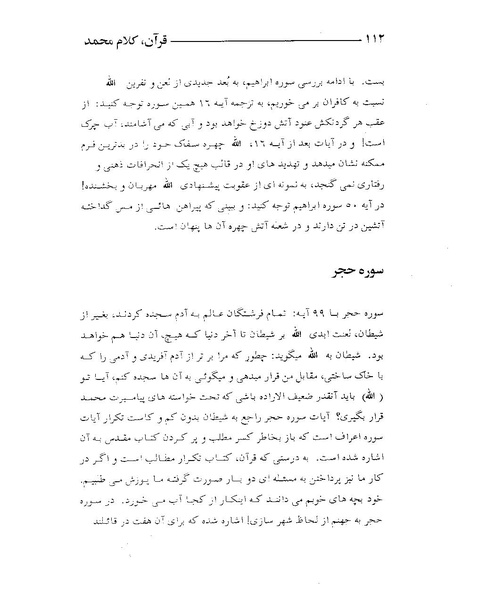 ۱۱۲ قرآن، کلام محمد
بست. با ادامه بررسی سوره ابراهیم، به بُعد جدیدی از لعن و نفرین الله
نسبت به کافران بر می خوریم، به ترجمه آیه ۱۶ همین سوره توجه کنید: از
عقب هر گردنکش عنود آتش دوزخ خواهد بود و آبی که می آشامند، آب چرک
است! و در آیات بعد از آیه ۱۶، الله چهره سفاک خود را در بدترین فرم
ممکنه نشان میدهد و تهدید های او در قالب هیچ یک از انحرافات ذهنی و
رفتاری نمی گنجد، به نمونه ای از عقوبت پیشنهادی الله مهربان و بخشنده!
در آیه ۵۰ سوره ابراهیم توجه کنید: و ببینی که پیراهن هائی از مس گداخته
آتشین در تن دارند و در شعله آتش چهره آن ها پنهان است.
سوره حجر
سوره حجر با ۹۹ آیه: تمام فرشتگان عالم به آدم سجده کردند، بغیر از
شیطان، لعنت ابدی الله بر شیطان تا آخر دنیا که هیچ، آن دنیا هم خواهد
بود. شیطان به الله میگوید: چطور که مرا بر تر از آدم آفریدی و آدمی را که
با خاک ساختی، مقابل من قرار میدهی و میگوئی به آن ها سجده کنم، آیا تو
(الله) باید آنقدر ضعیف الاراده باشی که تحت خواسته های پیامبرت محمد
قرار بگیری؟ آیات سوره حجر راجع به شیطان بدون کم و کاست تکرار آیات
سوره اعراف است که باز بخاطر کسر مطلب و پر کردن کتاب مقدس به آن
اشاره شده است. به درستی که قرآن، کتاب تکرار مطالب است و اگر در
کار ما نیز پرداختن به مسئله ای دو بار صورت گرفته ما پوزش می طلبیم.
خود بچه های خوبم می دانند که اینکار از کجا آب می خورد. در سوره
حجر به جهنم از لحاظ شهر سازی! اشاره شده که برای آن هفت در قائلند